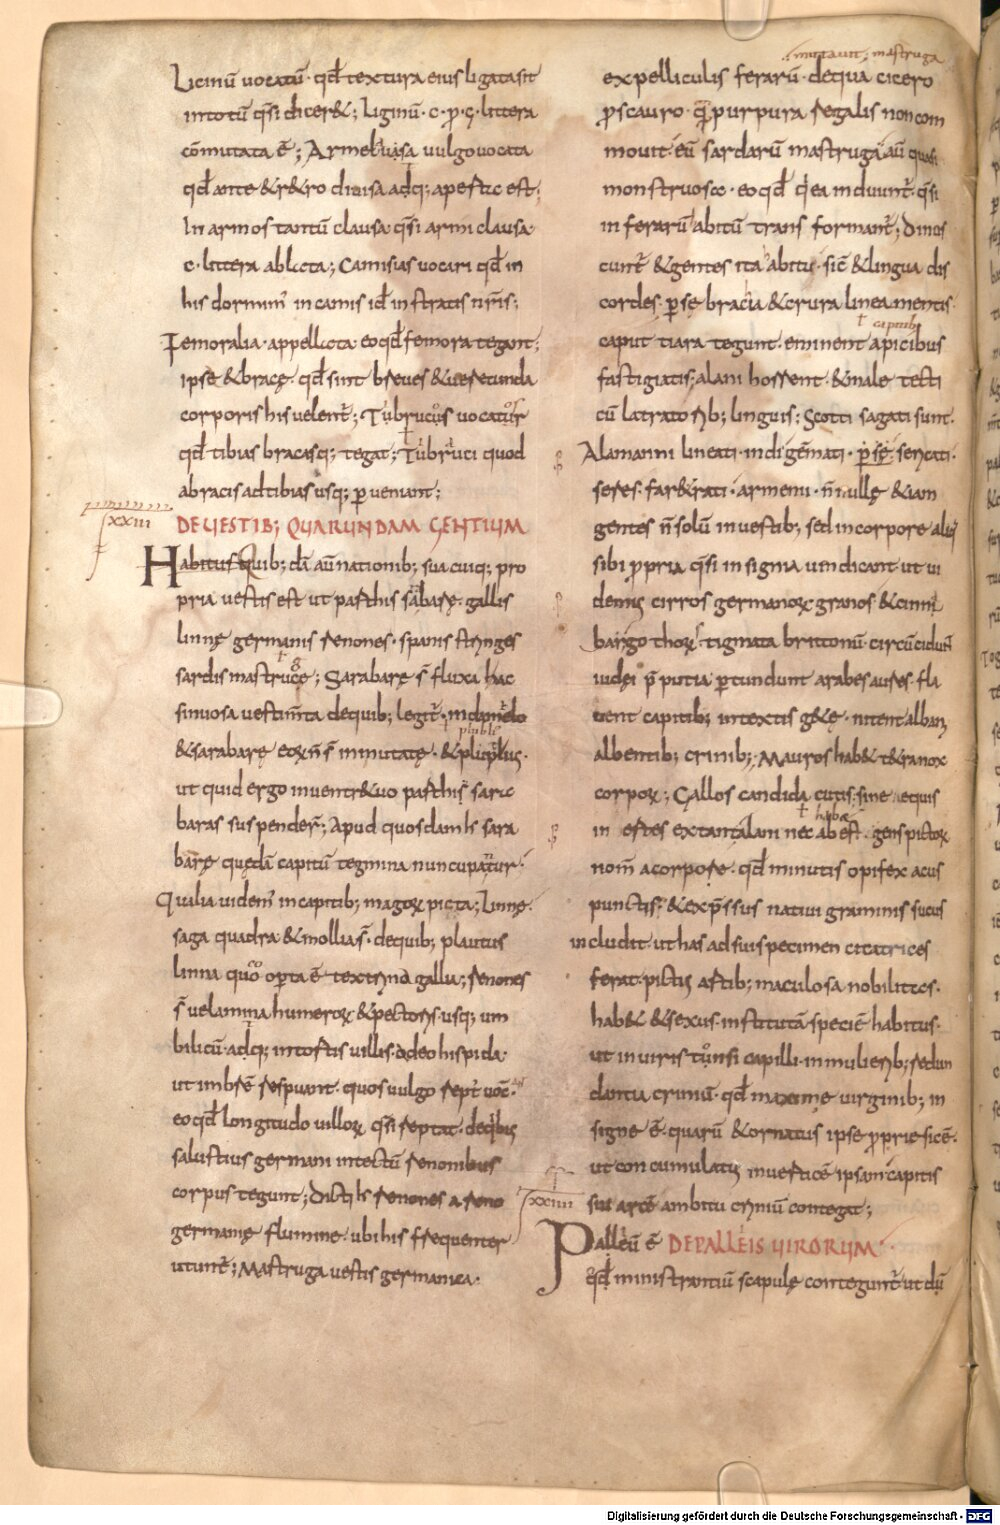 Licinū uocatū · qd̄ textura eius ligata sit
in totū q̄si dicer&; liginū · c · ꝓ · ç · littera
cōmutata ē; Armelausa uulgo uocata
qd̄ ante & r&ro diuisa adq; aperta est;
In armos tantū clausa q̄si armi clausa
c · littera ablata; Camisias uocari qd̄ in
his dormim' in camis id ē in stratis nr̄is;
Femoralia · appellata eo qd̄ femora tegant;
ipse & bracę · qd̄ sint breues & uerecunda
corporis his uelent̄; Tubrucos uocatur
qd̄ tibias bracasq; tegat; Tubruci quod
a bracis ad tibias usq; ꝑueniant;
XXIII
DE UESTIB; QUARUNDAM GENTIUM
Habitus quib; dā aū nationib; sua cuiq; pro
pria uestis est ut parthis sabarę · gallis
linnę germanis renones · spanis stringes
sardis mastrucę; Sarabarę s̄ fluxa hac
sinuosa uestim̄ta de quib; legit̄ · in danielo
& sarabarę eorū n̄ s̄ inmutatę · & publius
ut quid ergo in uentr& uo parthis sara
baras suspender̄; Apud quosdam ħ sara
barę quędā capitū tegmina nuncupatur ·
Qualia uidem' in capitib; magorꝝ picta; Linnę ·
saga quadra & mollia s̄ · de quib; plautus
linna quo oꝑta ē textrina gallia; renones
s̄ uelamina humerorꝝ & pectoris · usq; um
bilicū · adq; intortis uillis · adeo hispida ·
ut imbrē respuant · quos uulgo rept' uoc̄ ·
eo qd̄ longitudo uillorꝝ q̄si reptat · de quibus
salustius germani intectū renonibus
corpus tegunt; Dicti ħ renones a reno
germanię flumine · ubi his frequenter
utunt̄; Mastruga uestis germanica ·
mutauit; mastruga
ex pelliculis ferarū · de qua cicero
ꝓ scauro · q̄ purpura regalis non com
mouit · eū sardarū mastruga aū quasi
monstruosa · eo qd̄ q̇ ea induunt̄ · q̄si
in ferarū abitū trans formant̄; Dinos
cunt̄ & gentes ita abitu · sic̄ & lingua dis
cordes · ꝑsę bracia & crura lineamentis ·
capitib;
caput tiara tegunt · eminent apicibus
fastigiatis; alani horrent · & male tecti
cū latratorib; linguis; Scotti sagati sunt ·
Alamanni lineati · indi gēmati · ꝑsę · sericati ·
seres · far&rati · armeni · n̄nullę & iam
gentes n̄ solū in uestib; sed in corpore aliq̄
sibi ꝓpria q̄si insignia uindicant ut ui
demus cirros germanorꝝ · granos & cinni
bar gothorꝝ · stigmata brittonū · circūcidunt̄
iudęi p̄putia ꝑtundunt arabes aures · fla
uent capitib; intextis g&ę · nitent albani
albentib; crinib; Mauros hab& t&ra nox
corporꝝ; Gallos candida cutis · sine equis
habę
in ertes extant alani nec abest · gens pictorꝝ
nom̄ a corpore · qd̄ minutis opifex acus
punctis · & exp̄ssus natiui graminis sucus
includit · ut has ad sui specimen cicatrices
ferat · pictis artib; maculosa nobilitas ·
hab& & sexus · institutā speciē habitus ·
ut in uiris tonsi capilli · in mulierib; redun
dantia crinium · qd̄ maxime uirginib; in
signe ē · quarū & ornatus ipse ꝓprie sic ē ·
ut concumulatus in uertice ipsam capitis
XXIIII
sui arcē ambitu criniū contegat;
Palleū ē DE PALLEIS UIRORUM ·
qd̄ ministrantiū scapulę conteguntꝰ ut dū